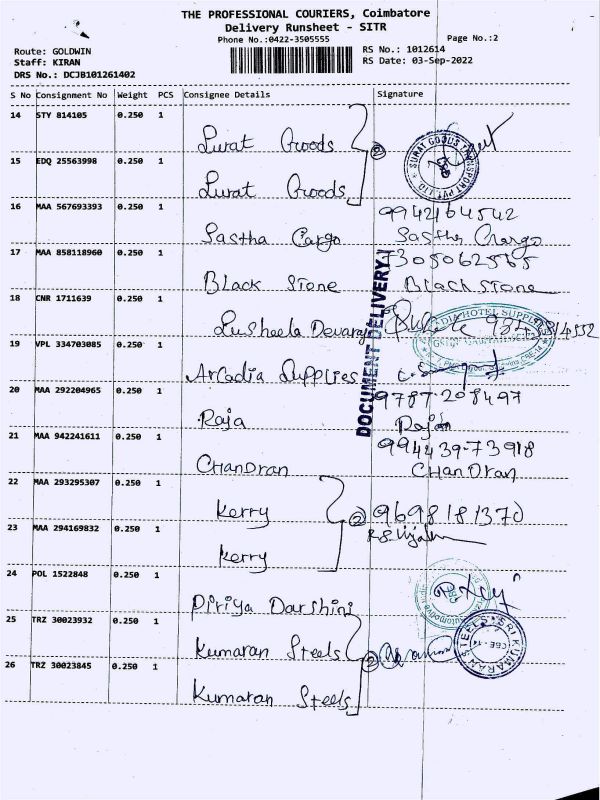 THE PROFESSIONAL COURIERS, Coimbatore
Delivery Runsheet - SITR
Phone No.:0422-3505555
Page No.:2
Route: GOLDWIN
RS No.: 1012614
Staff: KIRAN
RS Date: 03-Sep-2022
DRS No.: DCJB101261402
S No Consignment No Weight PCS Consignee Details Signature
14 STY 814105 0.250 1 Surat Goods
15 EDQ 25563998 0.250 1 Surat Goods
2
SURAT GOODS TRANSPORT PVT. LTD
16 MAA 567693393 0.250 1 Sastha Cargo
9942164542
Sastha Cargo
17 MAA 858118960 0.250 1 Black Stone
7305062565
Black Stone
DOCUMENT DELIVERY
18 CNR 1711639 0.250 1 Susheela Devaraj
19 VPL 334703085 0.250 1 Arcadia Supplies
HOTEL SUPPLIES
20 MAA 292204965 0.250 1 Raja
9787208497
Rajan
21 MAA 942241611 0.250 1 Chandran
994439-73918
Chandran
22 MAA 293295307 0.250 1 Kerry
2 9698181370
23 MAA 294169832 0.250 1 Kerry
24 POL 1522848 0.250 1 Piriya Darshini
Automotive
25 TRZ 30023932 0.250 1 Kumaran Steels
2
SRI KUMARAN STEELS
CBE - 14
26 TRZ 30023845 0.250 1 Kumaran Steels